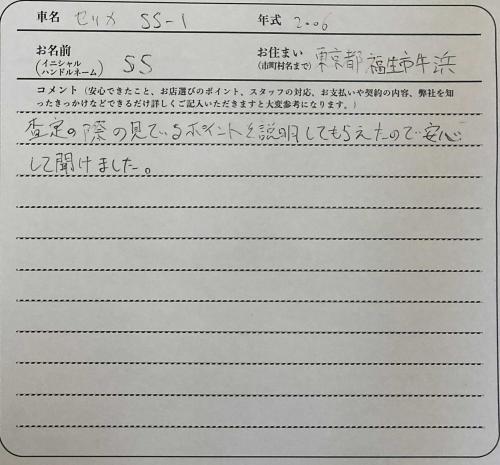 車名 セリカ SS-1 年式 2006
お名前 (イニシャル ハンドルネーム) SS お住まい (市町村名まで) 東京都福生市牛浜
コメント (安心できたこと、お店選びのポイント、スタッフの対応、お支払いや契約の内容、弊社を知
ったきっかけなどできるだけ詳しくご記入いただきますと大変参考になります。)
査定の際の見ているポイントを説明してもらえたので安心
して聞けました。